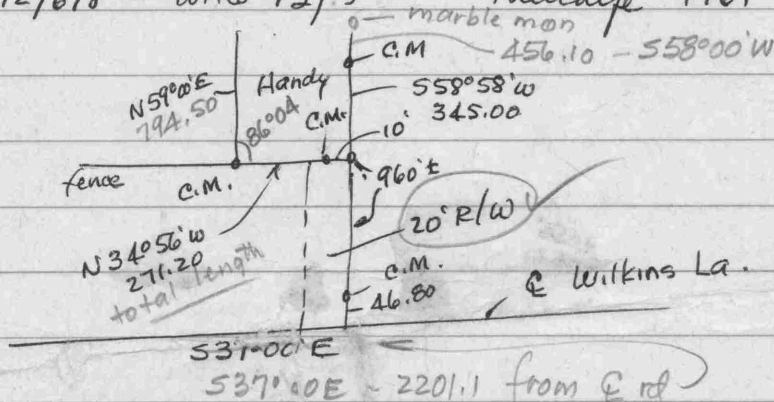 marble mon
C.M
456.10 - S58°00'W
N59°00'E
794.50
Handy
86°04
S58°58'W
345.00
C.M.
10'
fence
C.M.
960'±
20' R/W
N34°56'W
271.20
total length
C.M.
46.80
℄ Wilkins La.
S37-00'E
S37°00E - 2201.1 from ℄ rd